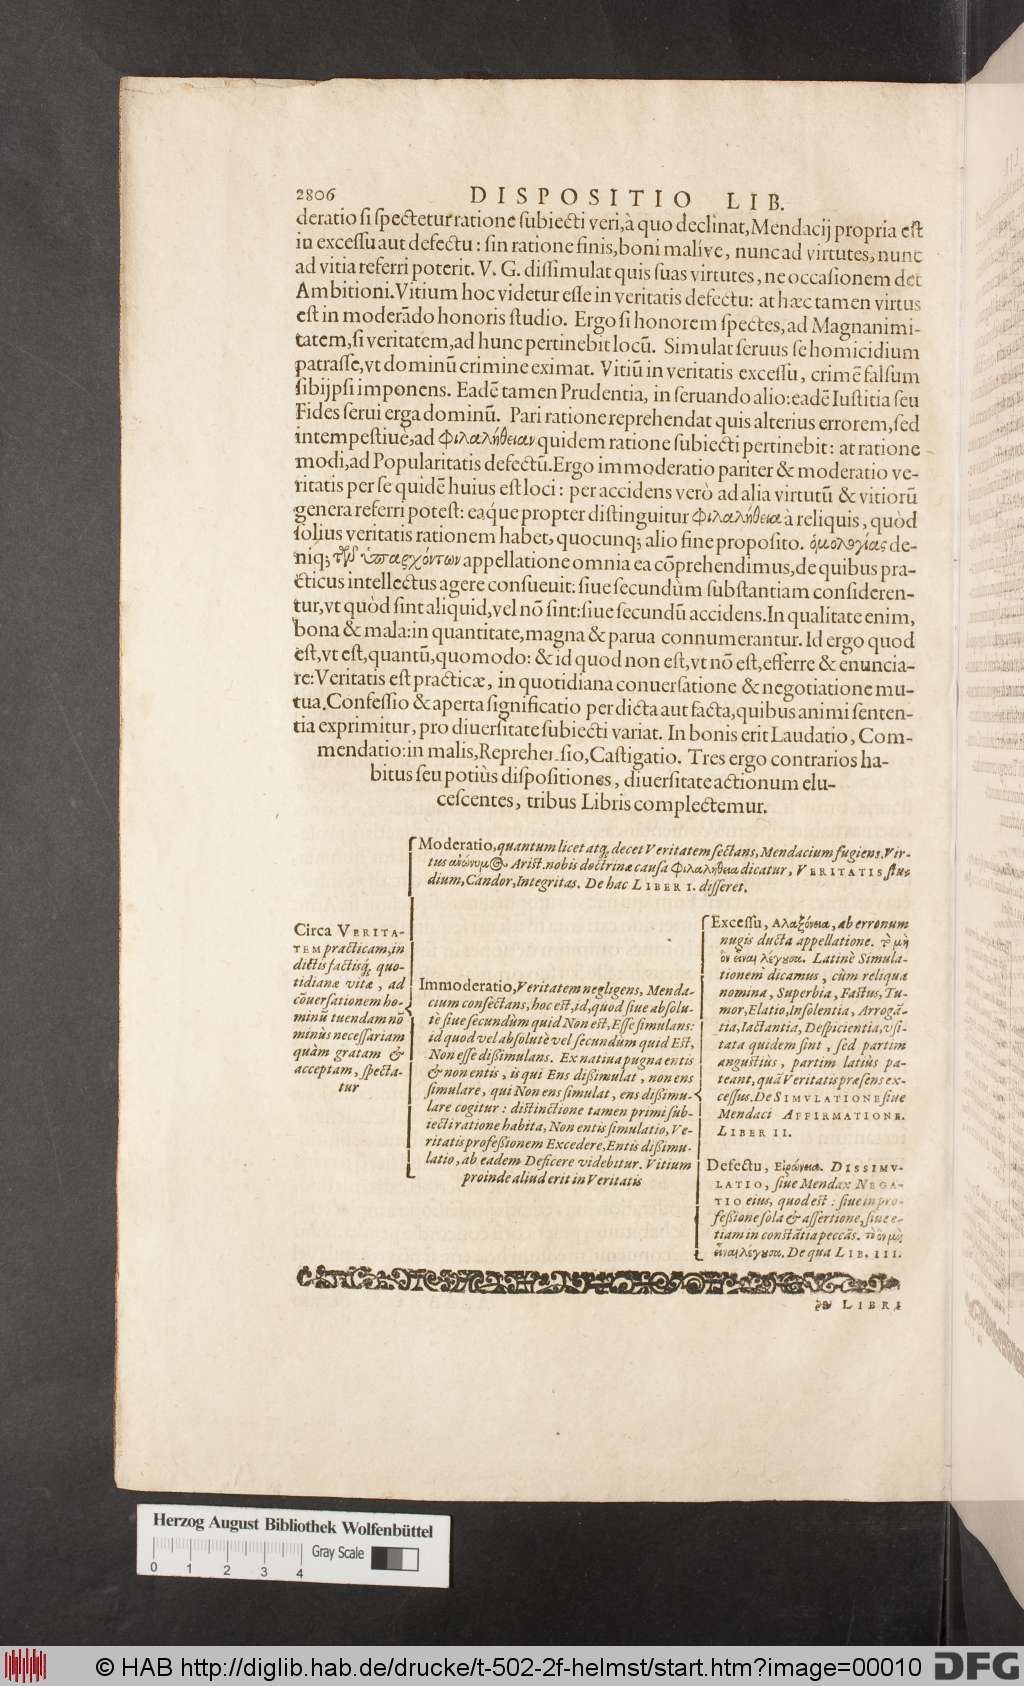 2806 DISPOSITIO LIB.
deratio si spectetur ratione subiecti veri, à quo declinat, Mendacij propria est
in excessu aut defectu: sin ratione finis, boni malíve, nunc ad virtutes, nunc
ad vitia referri poterit. V. G. dissimulat quis suas virtutes, ne occasionem det
Ambitioni. Vitium hoc videtur esse in veritatis defectu: at hæc tamen virtus
est in moderãdo honoris studio. Ergo si honorem spectes, ad Magnanimi-
tatem, si veritatem, ad hunc pertinebit locũ. Simulat seruus se homicidium
patrasse, vt dominũ crimine eximat. Vitiũ in veritatis excessu, crimẽ falsum
sibijpsi imponens. Eadẽ tamen Prudentia, in seruando alio: eadẽ Iustitia seu
Fides serui erga dominũ. Pari ratione reprehendat quis alterius errorem, sed
intempestiue, ad Φιλαλήθειαν quidem ratione subiecti pertinebit: at ratione
modi, ad Popularitatis defectũ. Ergo immoderatio pariter & moderatio ve-
ritatis per se quidẽ huius est loci: per accidens verò ad alia virtutũ & vitiorũ
genera referri potest: eaq́ue propter distinguitur Φιλαλήθεια à reliquis, quòd
solius veritatis rationem habet, quocunq; alio fine proposito. ὁμολογίας de-
niq; τῶν ὑπαρχόντων appellatione omnia ea cõprehendimus, de quibus pra-
cticus intellectus agere consueuit: siue secundùm substantiam consideren-
tur, vt quòd sint aliquid, vel nõ sint: siue secundũ accidens. In qualitate enim,
bona & mala: in quantitate, magna & parua connumerantur. Id ergo quod
est, vt est, quantũ, quomodo: & id quod non est, vt nõ est, efferre & enuncia-
re: Veritatis est practicæ, in quotidiana conuersatione & negotiatione mu-
tua. Confessio & aperta significatio per dicta aut facta, quibus animi senten-
tia exprimitur, pro diuersitate subiecti variat. In bonis erit Laudatio, Com-
mendatio: in malis, Reprehensio, Castigatio. Tres ergo contrarios ha-
bitus seu potiùs dispositiones, diuersitate actionum elu-
cescentes, tribus Libris complectemur.
Circa VERITA-
TEM practicam, in
dictis factisq́, quo-
tidianæ vitæ, ad
cõuersationem ho-
minũ tuendam nõ
minùs necessariam
quàm gratam &
acceptam, specta-
tur
Moderatio, quantum licet atq́, decet Veritatem sectans, Mendacium fugiens. Vir-
tus ανώνυμος Arist. nobis doctrinæ causa Φιλαλήθεια dicatur, VERITATIS stu-
dium, Candor, Integritas. De hac LIBER I. disseret.
Immoderatio, Veritatem negligens, Menda-
cium consectans, hoc est, id, quod siue absolu-
tè siue secundùm quid Non est, Esse simulans:
id quod vel absolutè vel secundùm quid Est,
Non esse dißimulans. Ex natiua pugna entis
& non entis, is qui Ens dißimulat, non ens
simulare, qui Non ens simulat, ens dißimu-
lare cogitur: distinctione tamen primi sub-
iecti ratione habita, Non entis simulatio, Ve-
ritatis profeßionem Excedere, Entis dißimu-
latio, ab eadem Deficere videbitur. Vitium
proinde aliud erit in Veritatis
Excessu, Αλαζόνεια, ab erronum
nugis ducta appellatione. τὸ μὴ
ὂν εἶναι λέγουσα. Latinè Simula-
tionem dicamus, cùm reliqua
nomina, Superbia, Fastus, Tu-
mor, Elatio, Insolentia, Arrogã-
tia, Iactantia, Despicientia, vsi-
tata quidem sint, sed partim
angustiùs, partim latiùs pa-
teant, quã Veritatis præsens ex-
cessus. De SIMVLATIONE siue
Mendaci AFFIRMATIONE.
LIBER II.
Defectu, Εἰρώνεια. DISSIMV-
LATIO, siue Mendax NEGA-
TIO eius, quod est: siue in pro-
feßione sola & assertione, siue e-
tiam in constãtia peccãs. τὸ ὂν μὴ
εἶναι λέγουσα. De qua LIB. III.
LIBRI
Herzog August Bibliothek Wolfenbüttel
Gray Scale
0 1 2 3 4
© HAB http://diglib.hab.de/drucke/t-502-2f-helmst/start.htm?image=00010 DFG